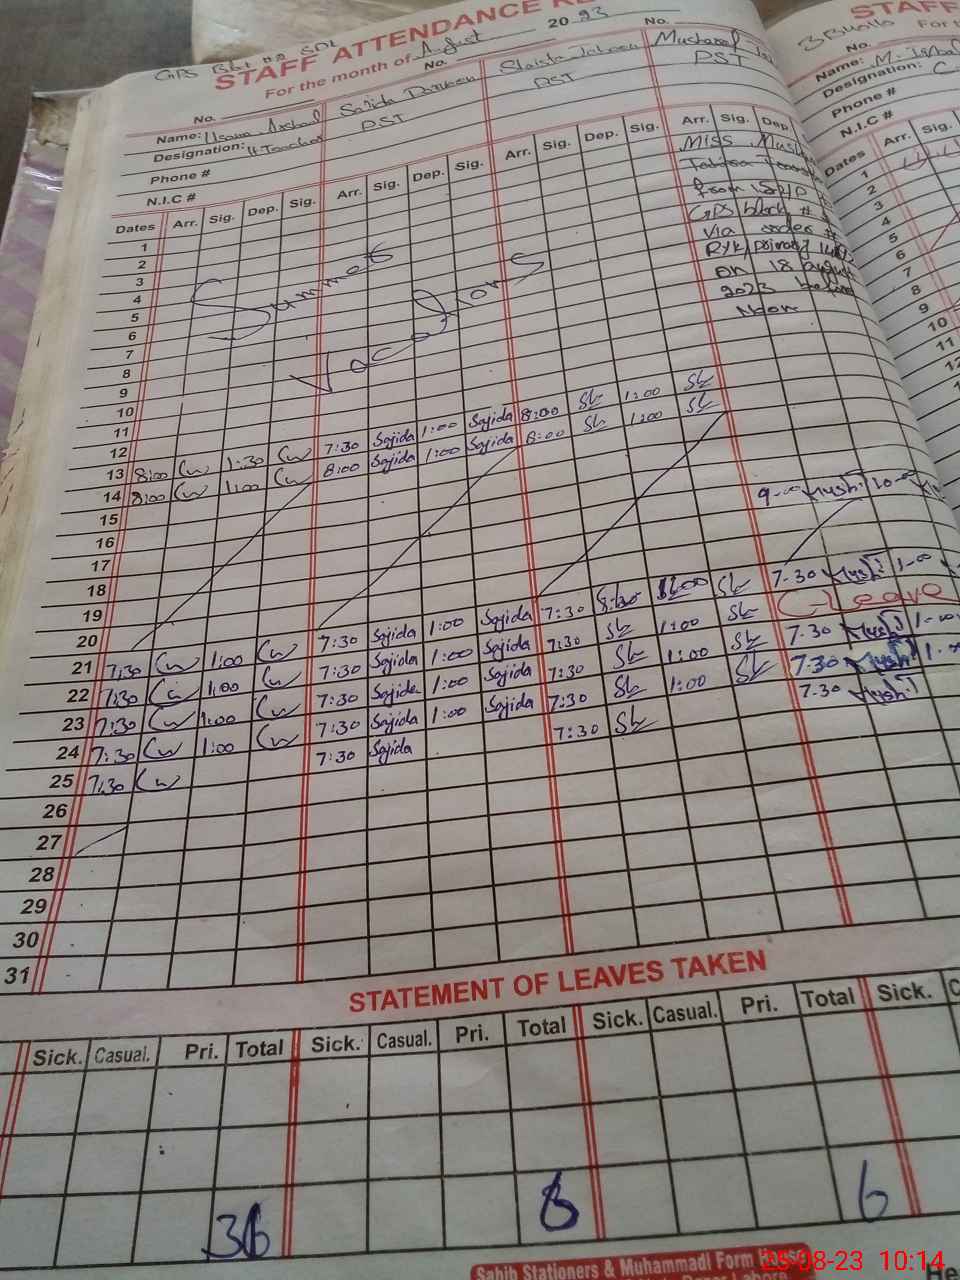 GPS
STAFF ATTENDANCE RE
For the month of August 2023
STAFF
For t
No.
No.
No.
No.
Name: Usama Arshad
Sajida Parveen
Shaista Jabeen
Musharaf
Name: M. Iqbal
Designation: H Teacher
PST
PST
PST
Designation: C
Phone #
Phone #
N.I.C #
N.I.C #
Dates Arr. Sig. Dep. Sig. Arr. Sig. Dep. Sig. Arr. Sig. Dep. Sig. Arr. Sig. Dep.
Dates Arr. Sig.
Miss Mush
from
GPS block #
via order #
on 18 august
2023 before
Noon
Summer
Vacations
1
2
3
4
5
6
7
8
9
10
11
12
13 8:00 1:30 7:30 Sajida 1:00 Sajida 8:00 Sh 1:00 Sh
14 8:00 1:00 8:00 Sajida 1:00 Sajida 8:00 Sh 1:00 Sh
15
16
17
18
19
20
21 7:30 1:00 7:30 Sajida 1:00 Sajida 7:30 Sh 7-30 Mushi 1-00
22 7:30 1:00 7:30 Sajida 1:00 Sajida 7:30 Sh 1:00 Sh C-Leave
23 7:30 1:00 7:30 Sajida 1:00 Sajida 7:30 Sh 1:00 Sh 7-30 Mushi 1-00
24 7:30 1:00 7:30 Sajida 1:00 Sajida 7:30 Sh 1:00 Sh 7-30 Mushi
25 7:30 7:30 Sajida 7:30 Sh 7-30 Mushi
26
27
28
29
30
31
1
2
3
4
5
6
7
8
9
10
11
12
STATEMENT OF LEAVES TAKEN
Sick. Casual. Pri. Total Sick. Casual. Pri. Total Sick. Casual. Pri. Total Sick. C
36 8 6
Sahib Stationers & Muhammadi Form House
25-08-23 10:14
He